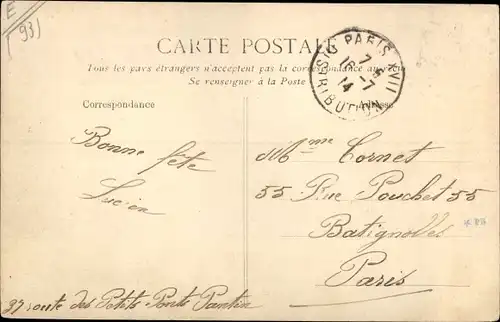 E
(93)
CARTE POSTALE
Tous les pays étrangers n'acceptent pas la correspondance au recto
Se renseigner à la Poste
PARIS XVII
7
16 - 7
14
DISTRIBUTION
Correspondance
Adresse
Bonne fête
Lucien
Mme Cornet
55 Rue Pouchet 55
Batignolles
Paris
37 route des Petits Ponts Pantin